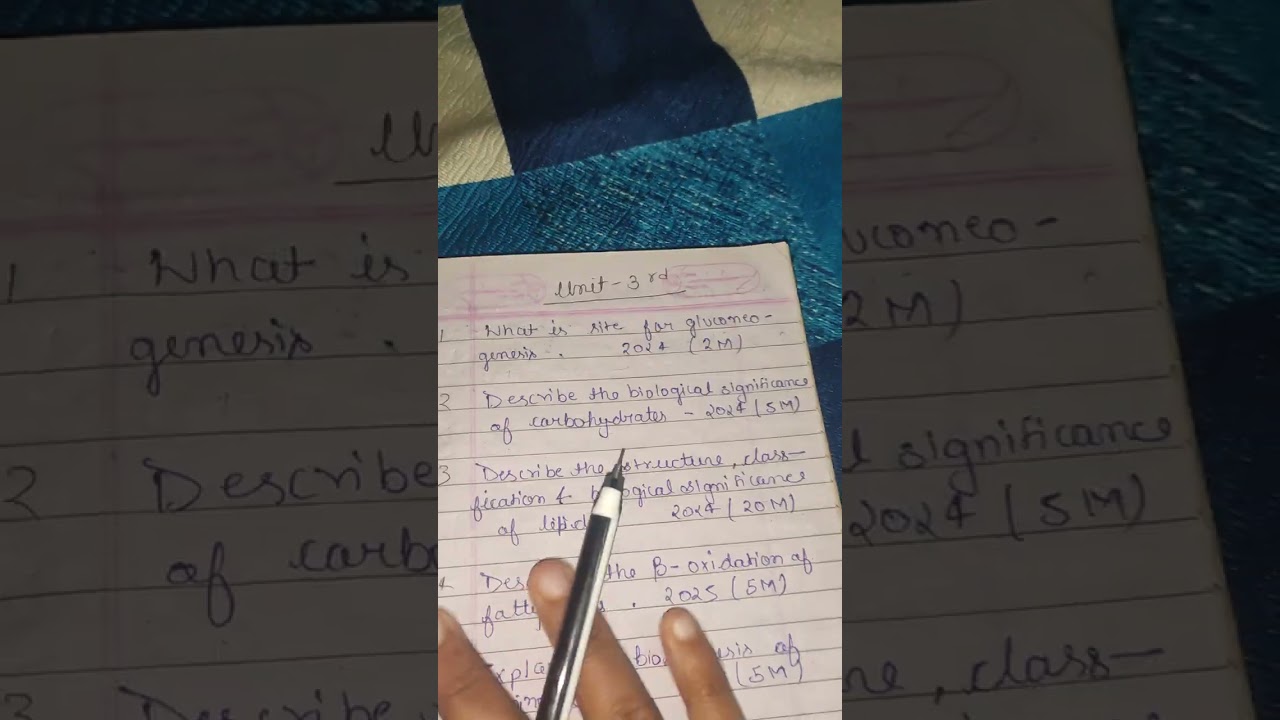 Unit - 3rd
1 What is site for gluconeo-
genesis. 2024 (2M)
2 Describe the biological significance
of carbohydrates - 2024 (5M)
3 Describe the structure, class-
fication & biological significance
of 2024 (20M)
the β-oxidation of
2025 (5M)
of
(5M)